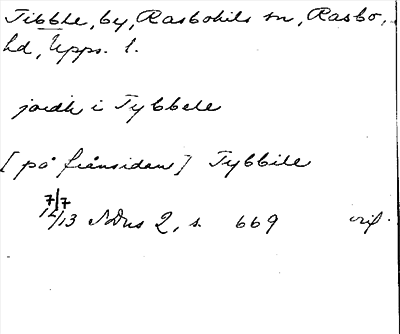 Tibble, by, Rasbokils sn, Rasbo,
hd, Upps. l.
jordh i Tybbele
[på frånsidan] Tybbile
7/7 1413 SDns 2, s. 669 orig.